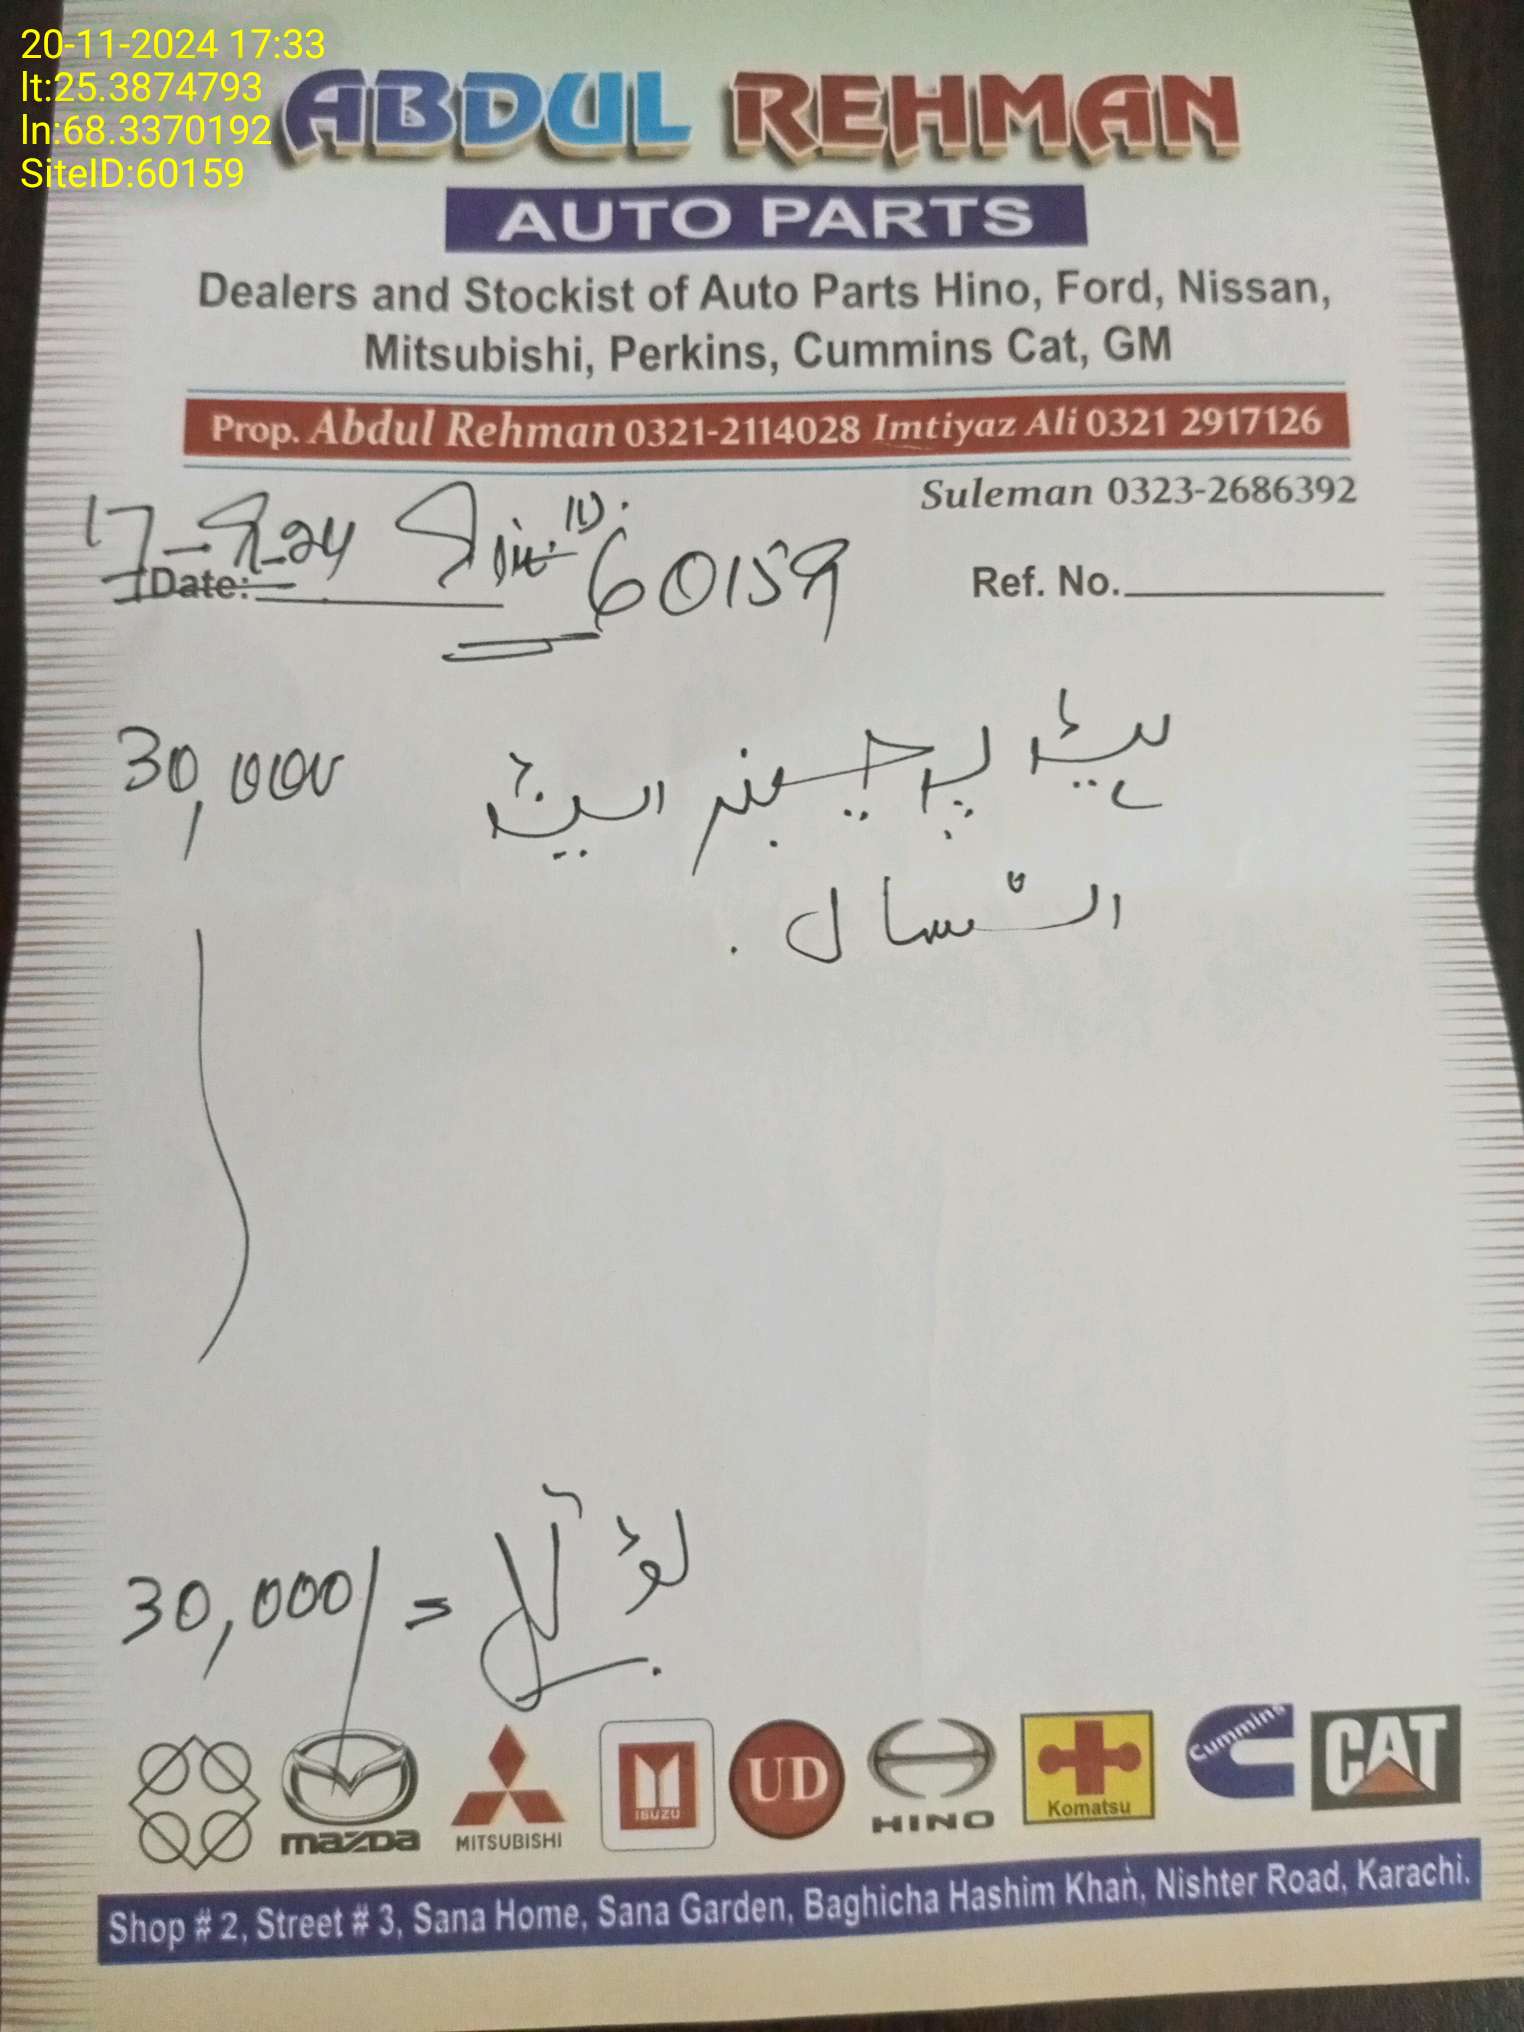 20-11-2024 17:33
lt:25.3874793
ln:68.3370192
SiteID:60159
ABDUL REHMAN
AUTO PARTS
Dealers and Stockist of Auto Parts Hino, Ford, Nissan,
Mitsubishi, Perkins, Cummins Cat, GM
Prop. Abdul Rehman 0321-2114028 Imtiyaz Ali 0321 2917126
Suleman 0323-2686392
17-9-24 60159
Date: Ref. No.
30,000
30,000/= ٹوٹل
mazda MITSUBISHI ISUZU UD HINO Komatsu Cummins CAT
Shop # 2, Street # 3, Sana Home, Sana Garden, Baghicha Hashim Khan, Nishter Road, Karachi.